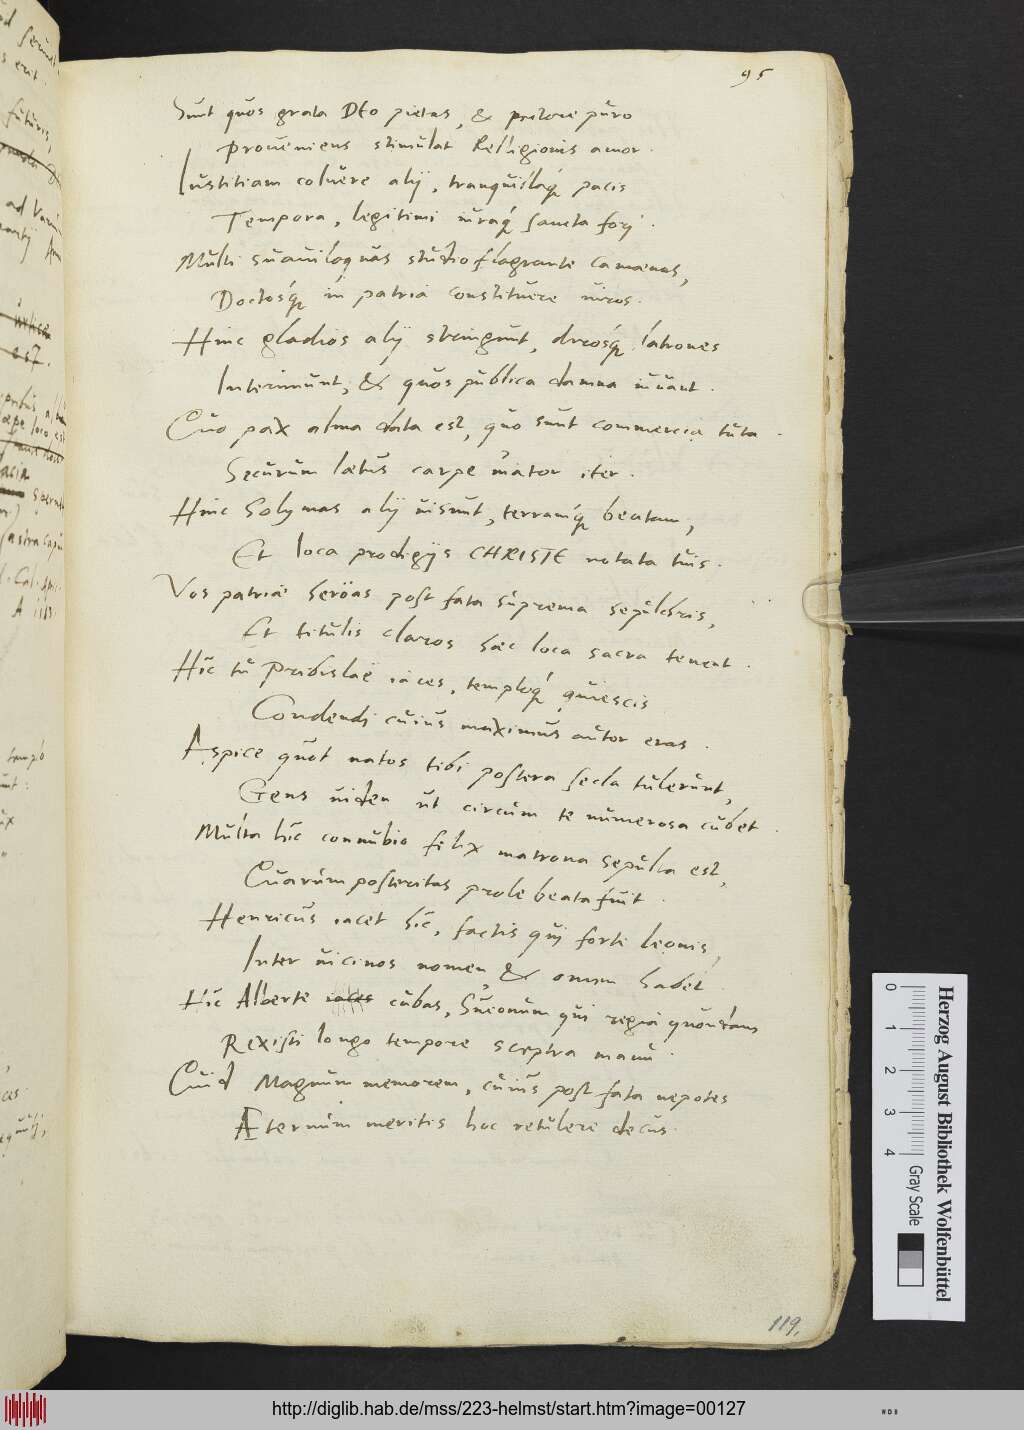 95
Sunt quos grata DEO pietas, & pectore puro
Proueniens stimulat Relligionis amor.
Iustitiam coluere alij, tranquillaq́; pacis
Tempora, legitimi iuraq́; sancta forj.
Multi suauiloquas studio flagrante camœnas,
Doctosq́; in patria constituere uiros.
Hinc gladios alij stringunt, durosq́; latrones
Interimunt, & quos publica damna iuuant.
Quo pax alma data est, quo sunt commercia tuta.
Securum lætus carpe uiator iter.
Hinc Solymas alij uisunt, terramq́; beatam,
Et loca prodigijs CHRISTE notata tuis.
Vos patriæ heröas post fata suprema sepulchris,
Et titulis claros hæc loca sacra tenent.
Hic tu Pribislaë iaces, temploq́; quiescis
Condendi cuius maximus autor eras.
Aspice quot natos tibi postera secla tulerunt,
Gens uiden ut circum te numerosa cubet.
Multa hic connubio felix matrona sepulta est,
Quarum posteritas prole beata fuit.
Henricus iacet hic, factis qui forti leonis,
Inter uicinos nomen, & omen habet.
Hic Alberte iaces cubas, Sueonum qui regia quondam
Rexisti longo tempore sceptra manu.
Quid Magnum memorem, cuius post fata nepotes
Æternum meritis hoc retulere decus.
119.
Herzog August Bibliothek Wolfenbüttel
0 1 2 3 4 Gray Scale
http://diglib.hab.de/mss/223-helmst/start.htm?image=00127